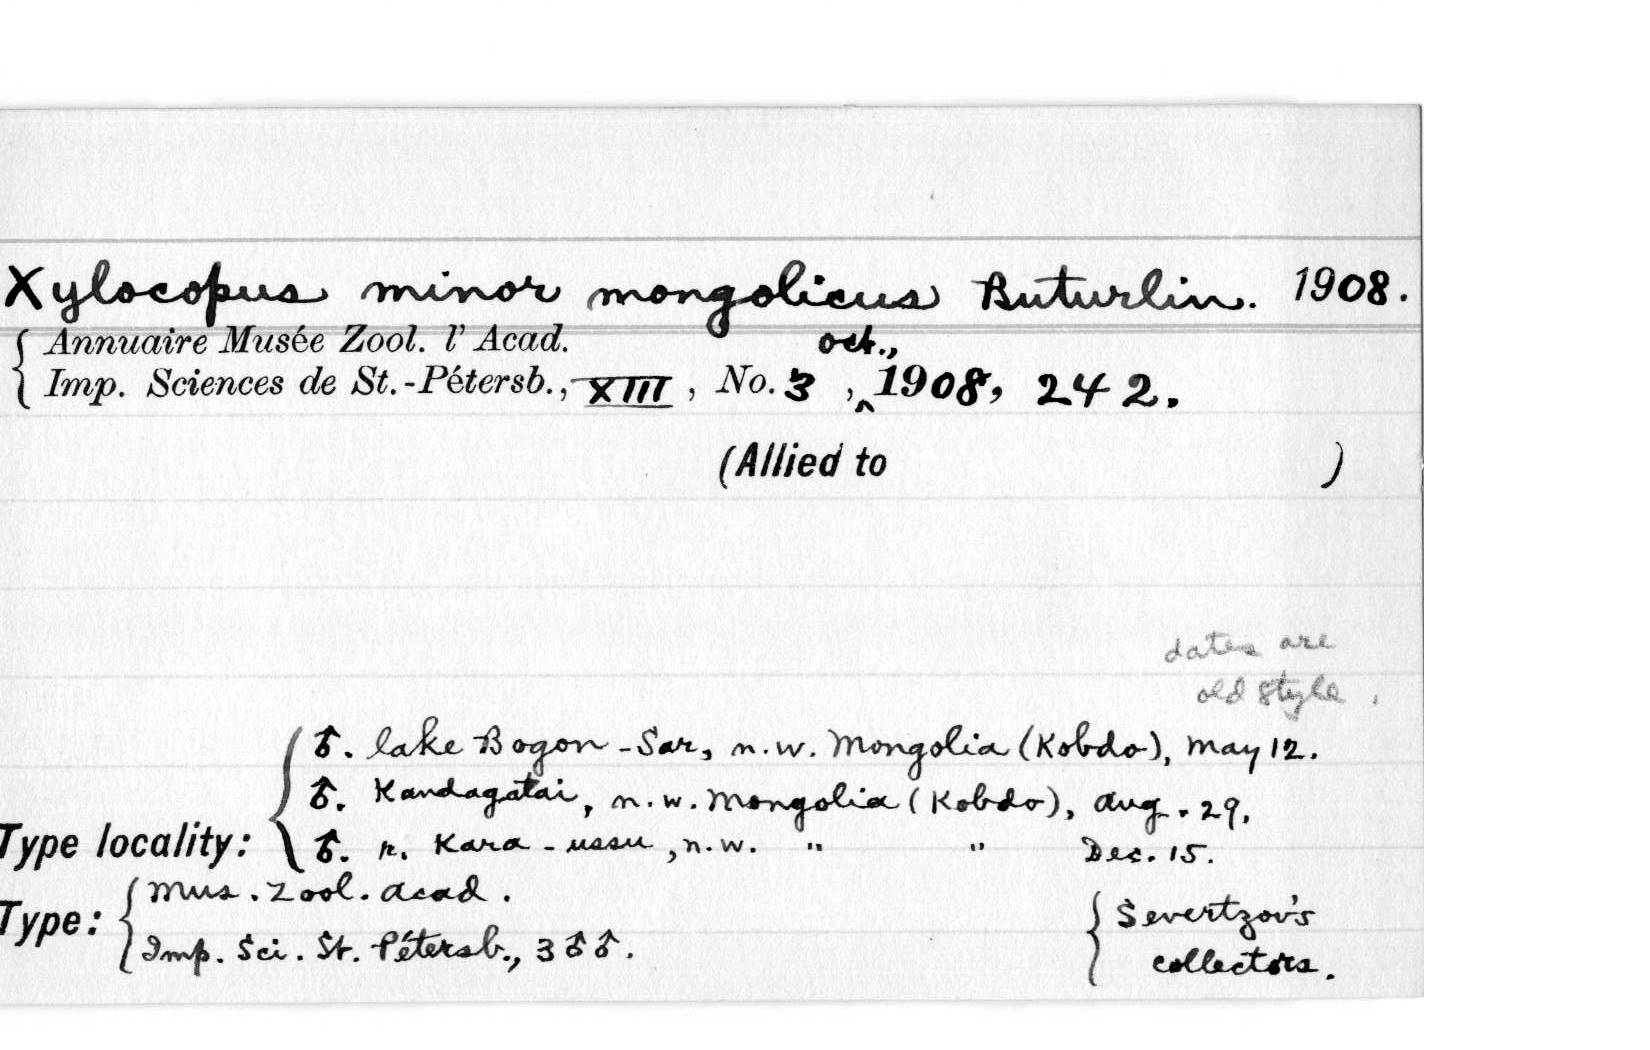 Xylocopus minor mongolicus Buturlin. 1908.
Annuaire Musée Zool. l' Acad.
Imp. Sciences de St.-Pétersb., XIII, No. 3, Oct., 1908, 242.
(Allied to )
dates are
old style.
♂. lake Bogon-Sar, n.w. Mongolia (Kobdo), May 12.
♂. Kandagatai, n.w. Mongolia (Kobdo), Aug. 29.
Type locality: ♂. r. Kara-ussu, n.w. " " Dec. 15.
Type: Mus. Zool. Acad.
Imp. Sci. St. Pétersb., 3 ♂♂.
Severtzov's
collectors.